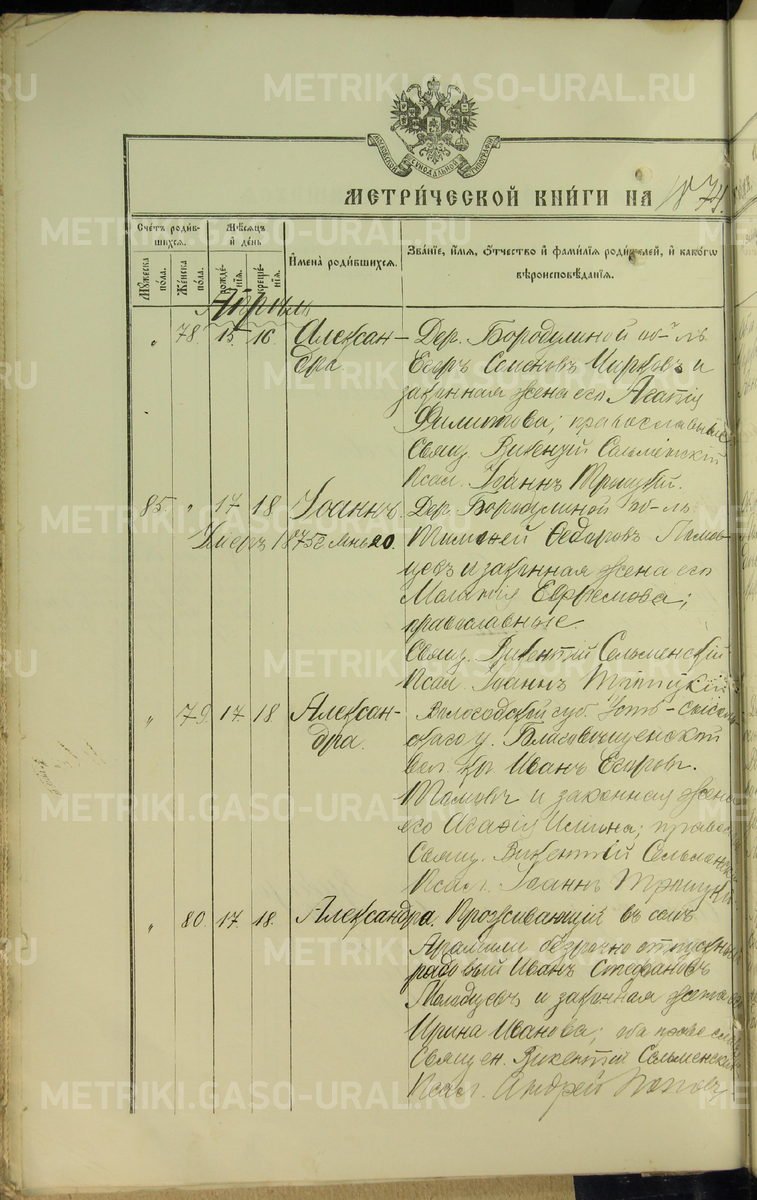 METRIKI.GASO-URAL.RU
МЕТРИ́ЧЕСКОЙ КНИ́ГИ НА 1874
Сче́тъ роди́в-
шихся.
Мꙋ́жеска по́ла.
Же́нска по́ла.
Мѣ́сяцъ
и҆ де́нь
рожде́нїя.
креще́нїя.
И҆мена̀ роди́вшихся.
Зва́нїе, и҆́мя, ѻ҆́тчество и҆ фами́лїя роди́телей, и҆ како́гѡ
вѣроисповѣ́данїя.
Апрѣль
" 78. 15. 16. Алексан-
дра.
Дер. Бородулиной
Егоръ Семеновъ Чирковъ и
законная жена его Агапія
Филипова; православные
Свящ. Викентій Сельменскій
Псал. Іоаннъ Трицкій.
85. " 17 18 Іоаннъ.
Умеръ 1875 20.
Дер. Бородулиной
Тимофей Федоровъ
и законная жена его
Ефремова;
православные.
Свящ. Викентій Сельменскій
Псал. Іоаннъ
" 79. 17. 18 Алексан-
дра.
Вологодской губ. Усть-Сысоль-
скаго у. Благовѣщенской
вол. кр. Иванъ Егоровъ
и законная жена
его Агафія Ильина;
Свящ. Викентій Сельменскій
Псал. Іоаннъ
" 80. 17. 18. Александра.
Проживающій въ селѣ
Арамили безсрочно отпускный
рядовый Иванъ Стефановъ
и законная жена его
Ирина Иванова; оба
Священ. Викентій Сельменскій
Псал. Андрей Поповъ